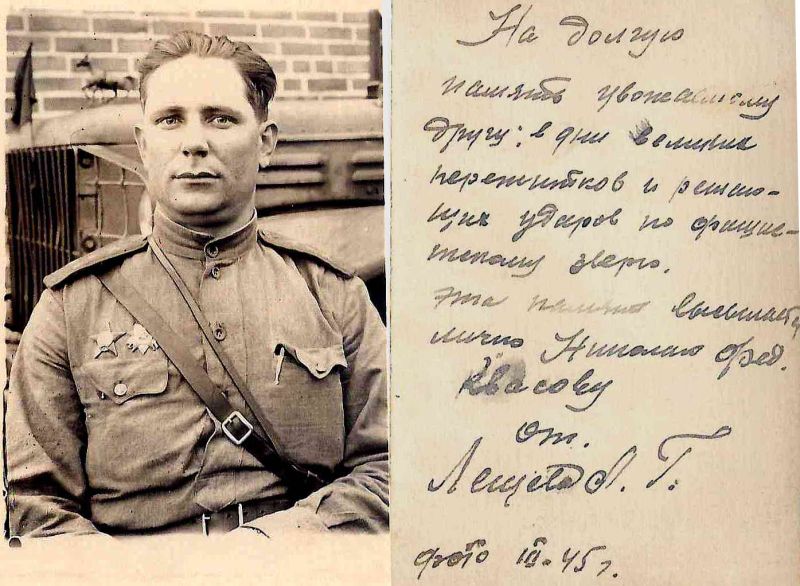 На долгую
память уважаемому
другу: в дни великих
пережитков и решаю-
щих ударов по фашис-
тскому зверю.
Эта память высылается
лично Николаю Фед.
Квасову
от.
А. Г.
фото III-45 г.